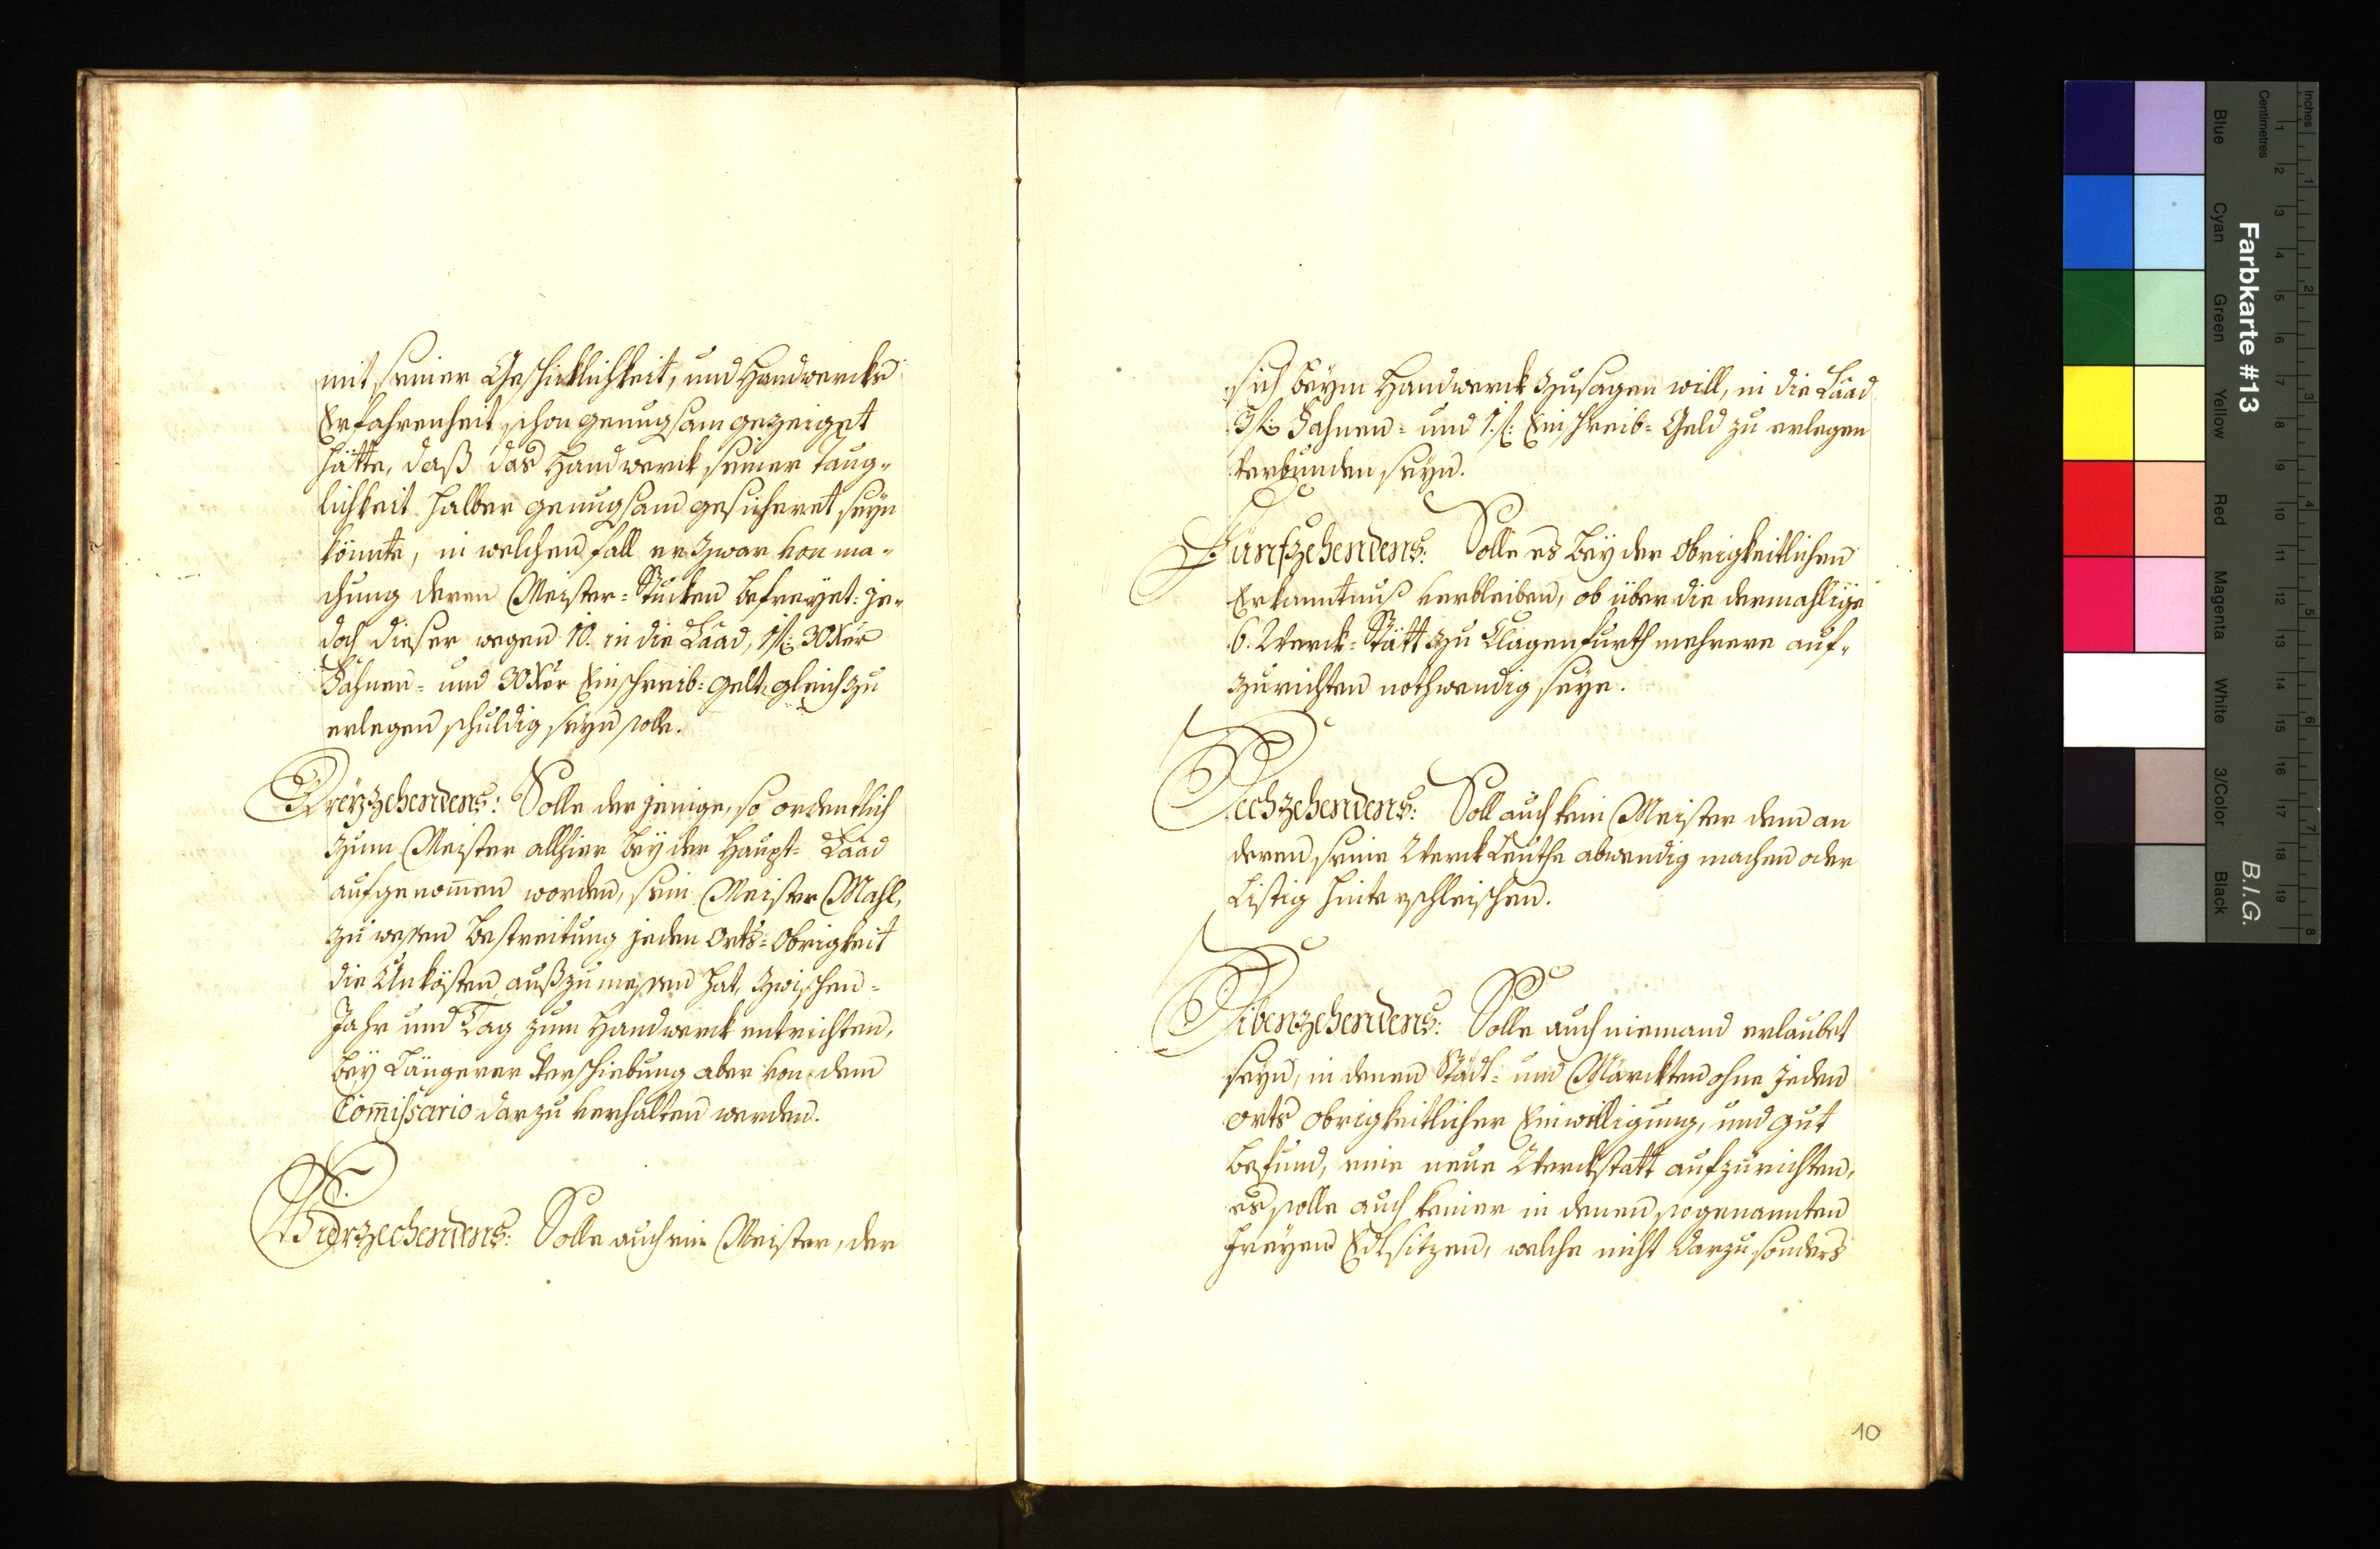 mit seiner Geschicklichkeit, und Handwercks
Erfahrenheit schon genugsam gezeiget
hätte, daß das Handwerck seiner Taug-
lichkeit halber genugsam gesicheret seyn
könnte, in welchen fall er zwar von ma-
chung deren Meister-Stucken befreyet: je-
doch dieser wegen 10. in die Laad, 1 f: 30 Xer
Fahnen- und 30 Xer Einschreib-gelt gleich zu
erlegen schuldig seyn solle.
Dreyzzehendens: Solle der jenige, so ordentlich
zum Meister allhier bey der Haupt-Laad
aufgenom̄en worden, sein Meister Mahl,
zu wessen bestreitung jeden Orts-Obrigkeit
die Unkösten außzumessen hat, zwischen-
Jahr und Tag zum Handwerck entrichten,
bey Längerer Verschiebung aber von dem
Com̄issario darzu verhalten werden.
Vierzechendens: Solle auch ein Meister, der
sich beym Handwerck zusagen will, in die Laad
3 f: Fahnen- und 1. f: Einschreib-Geld zu erlegen
verbunden seyn.
Fünfzehendens: Solle es bey der Obrigkeitlichen
Erkanntnuß verbleiben, ob über die dermahlige
6. Werck-Stätt zu Clagenfurth mehrere auf-
zurichten nothwendig seye.
Sechzehendens: Soll auch kein Meister dem an
deren seine Werck Leuthe abwendig machen oder
Listig hinterschleichen.
Sibenzehendens: Solle auch niemand erlaubet
seyn, in denen Städt- und Märckten ohne jeden
orts obrigkeitlicher Einwilligung, und gut
befund, eine neue Werckstatt aufzurichten,
es solle auch keiner in denen sogenannten
freyen Edlsitzen, welche nicht darzu sonders
10
Inches
Centimetres
1 2 3 4 5 6 7 8 9 10 11 12 13 14 15 16 17 18 19
1 2 3 4 5 6 7 8
Blue Cyan Green Yellow Red Magenta White 3/Color Black
Farbkarte #13
B.I.G.